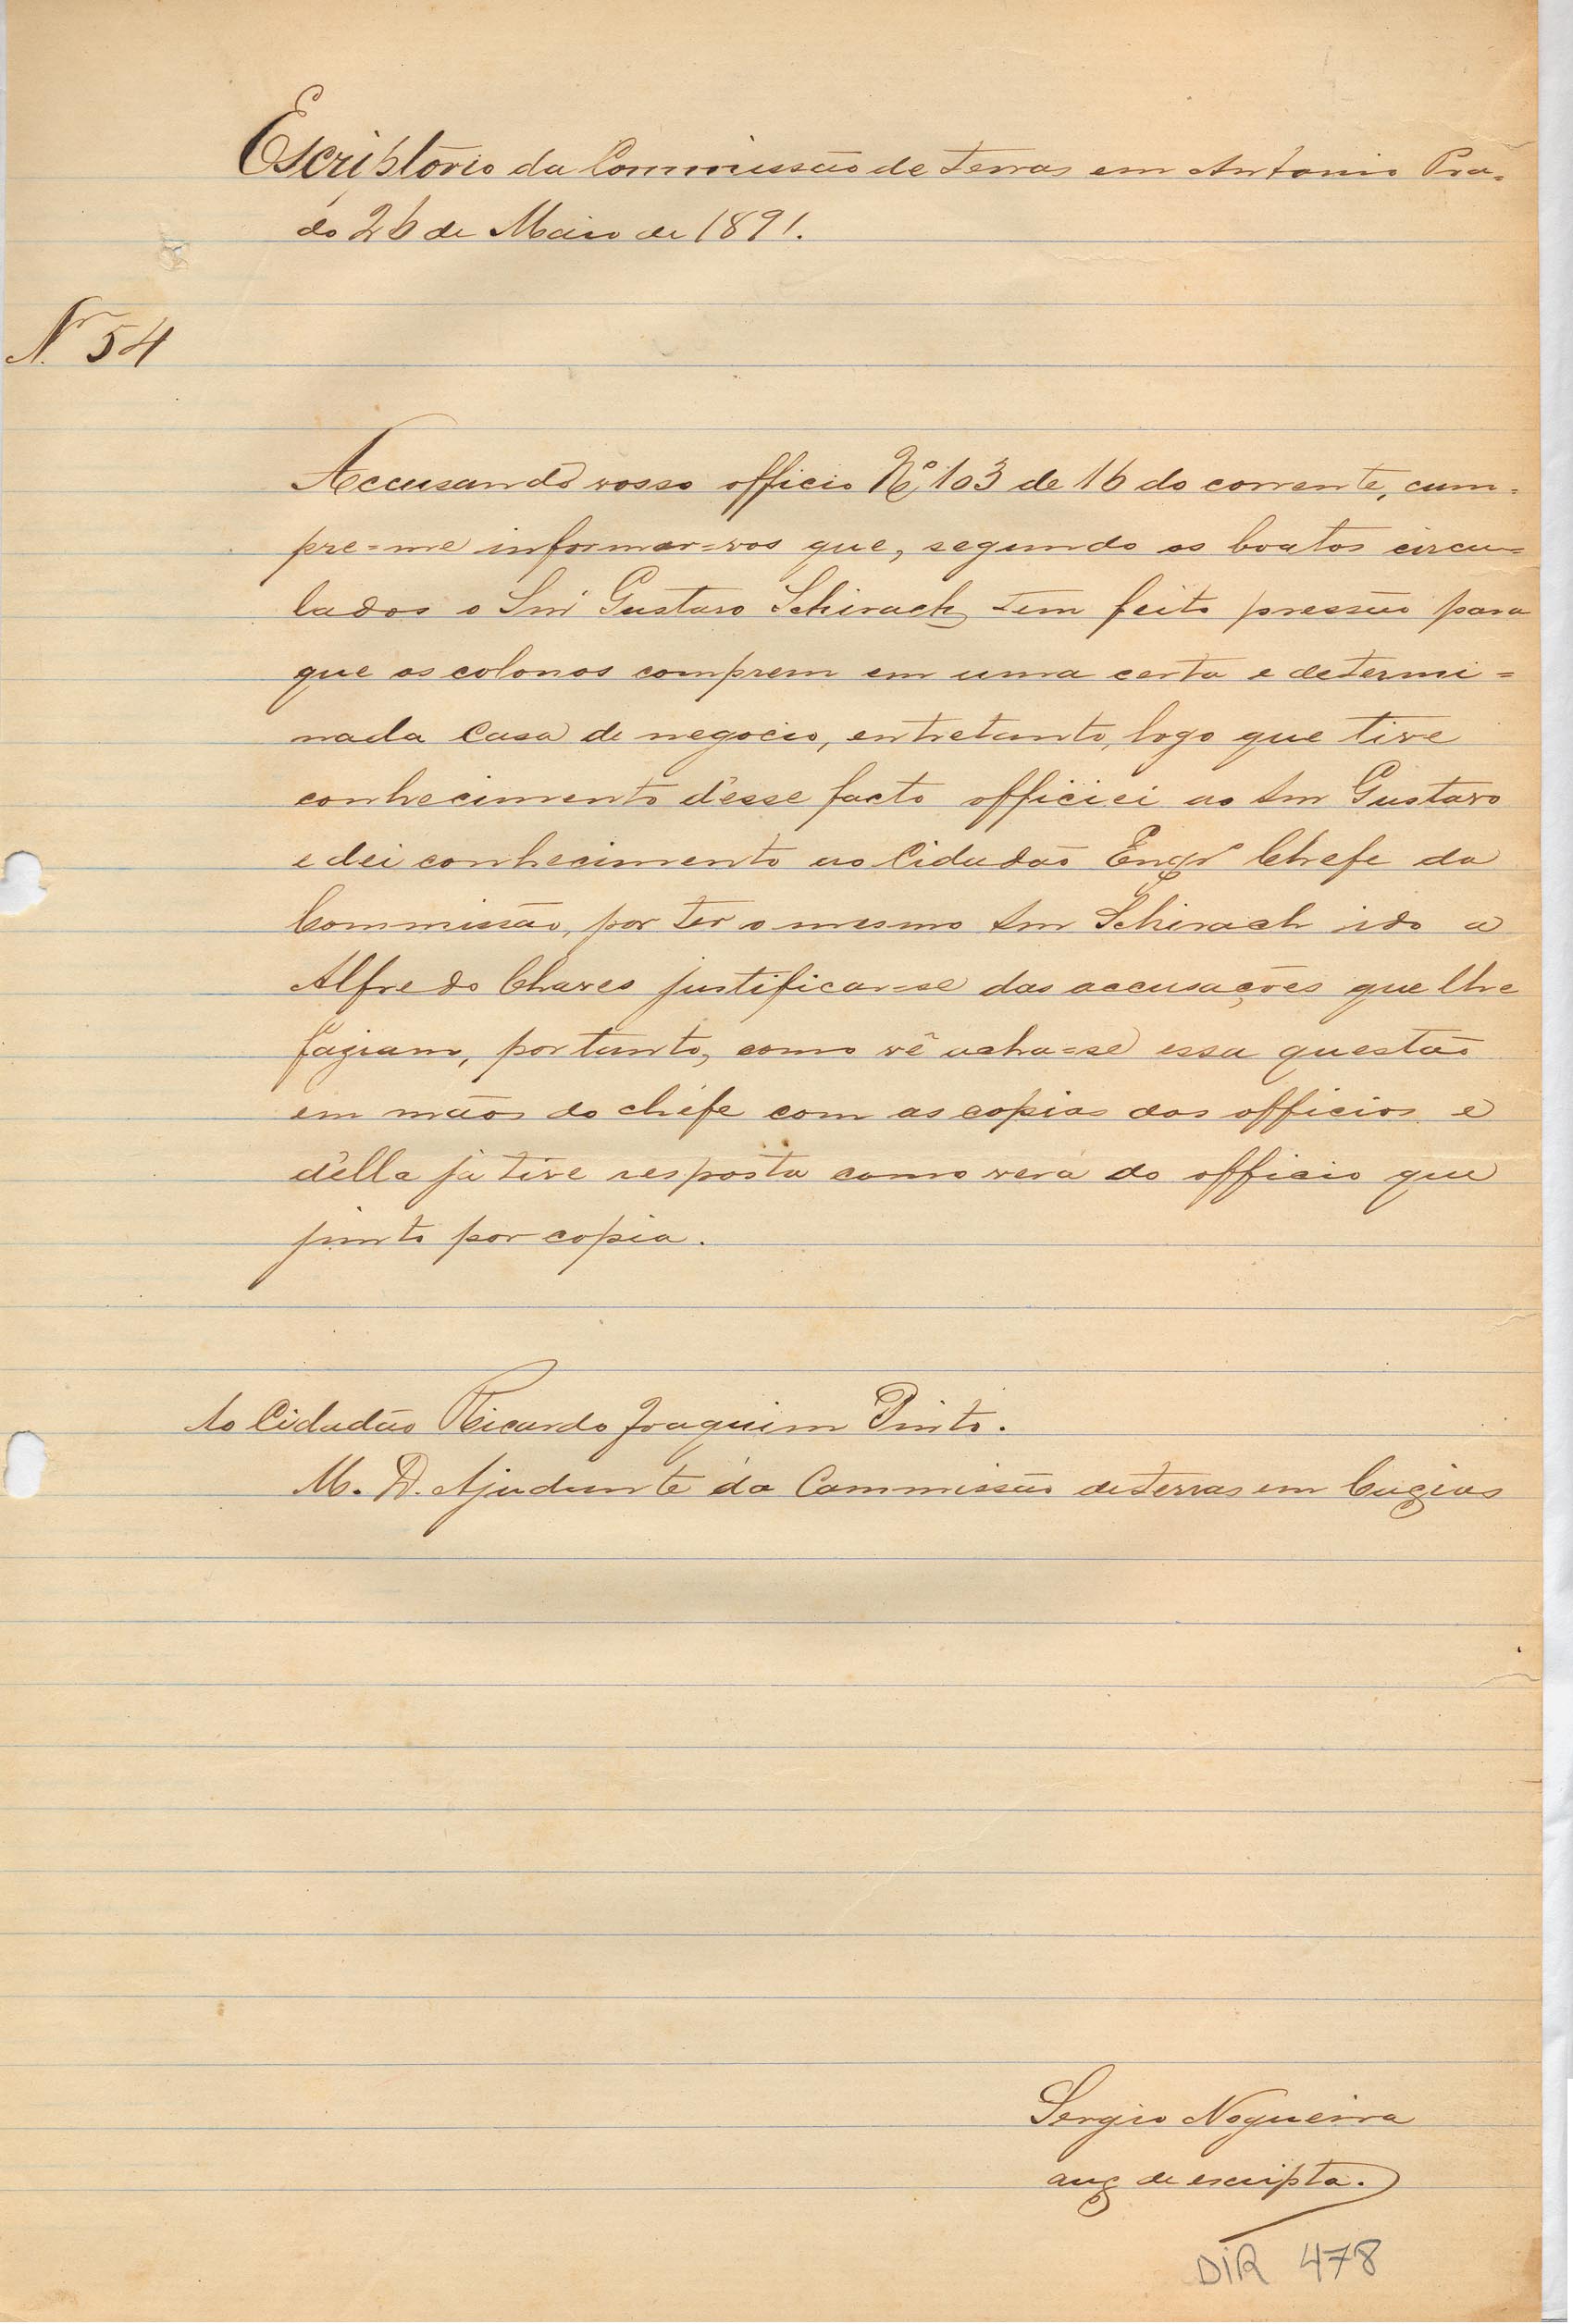 Escriptorio da Commissão de terras em Antonio Pra-
do 26 de Maio de 1891.
Nº 54
Accusando vosso officio Nº 103 de 16 do corrente, cum=
pre=me informar=vos que, segundo os boatos circu=
lados o Snr Gustavo Schirach tem feito pressão para
que os colonos comprem em uma certa e determi=
nada casa de negocio, entretanto, logo que tive
conhecimento d'esse facto officiei ao Snr Gustavo
e dei conhecimento ao Cidadão Engr Chefe da
Commissão, por ter o mesmo Snr Schirach ido a
Alfredo Chaves justificar=se das accusações que lhe
faziam, portanto, como vê acha=se essa questão
em mãos do chefe com as copias dos officios e
d'elle já tive resposta como verá do officio que
junto por copia.
Ao Cidadão Ricardo Joaquim Pinto.
M. D. Ajudante da Commissão de terras em Caxias
Sergio Nogueira
aux de escripta.
DIR 478